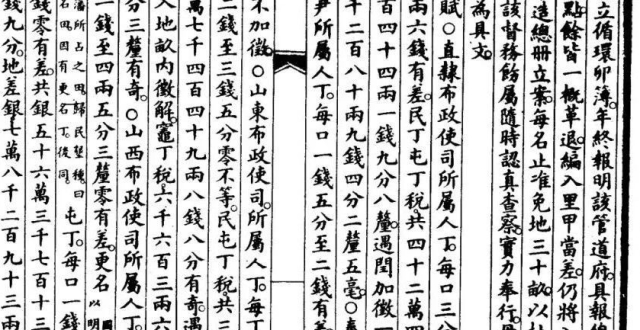 立循環卯簿。年終報明該管道府。具報
點餘皆一概革退。編入里甲當差。仍將
造總冊立案。每名止准免地三十畝。以
該督務飭屬隨時認真查察。實力奉行。
為具文。
賦。○直隸布政使司所屬人丁。每口三分
兩六錢有差。民丁屯丁稅。共四十二萬四
百四十四兩一錢九分八釐。遇閏加徵一
千二百八十兩九錢四分二釐五毫。○奉
尹所屬人丁。每口一錢五分至二錢有差
不加徵。○山東布政使司。所屬人丁。每丁
二錢至三錢五分零不等。民屯丁稅共三
萬七千四百四十九兩八錢八分有奇。遇
入地畝內徵解。竈丁稅。六千六百三兩六
分三釐有奇。○山西布政使司所屬人丁。
一錢至四兩五分三釐零有差。更名 以明
藩所占之田歸民墾種曰
名田因有更名丁後同
屯丁。每口一錢
錢零有差。共銀五十六萬三千七百十三
錢九分。地差銀七萬八千二百九十三兩